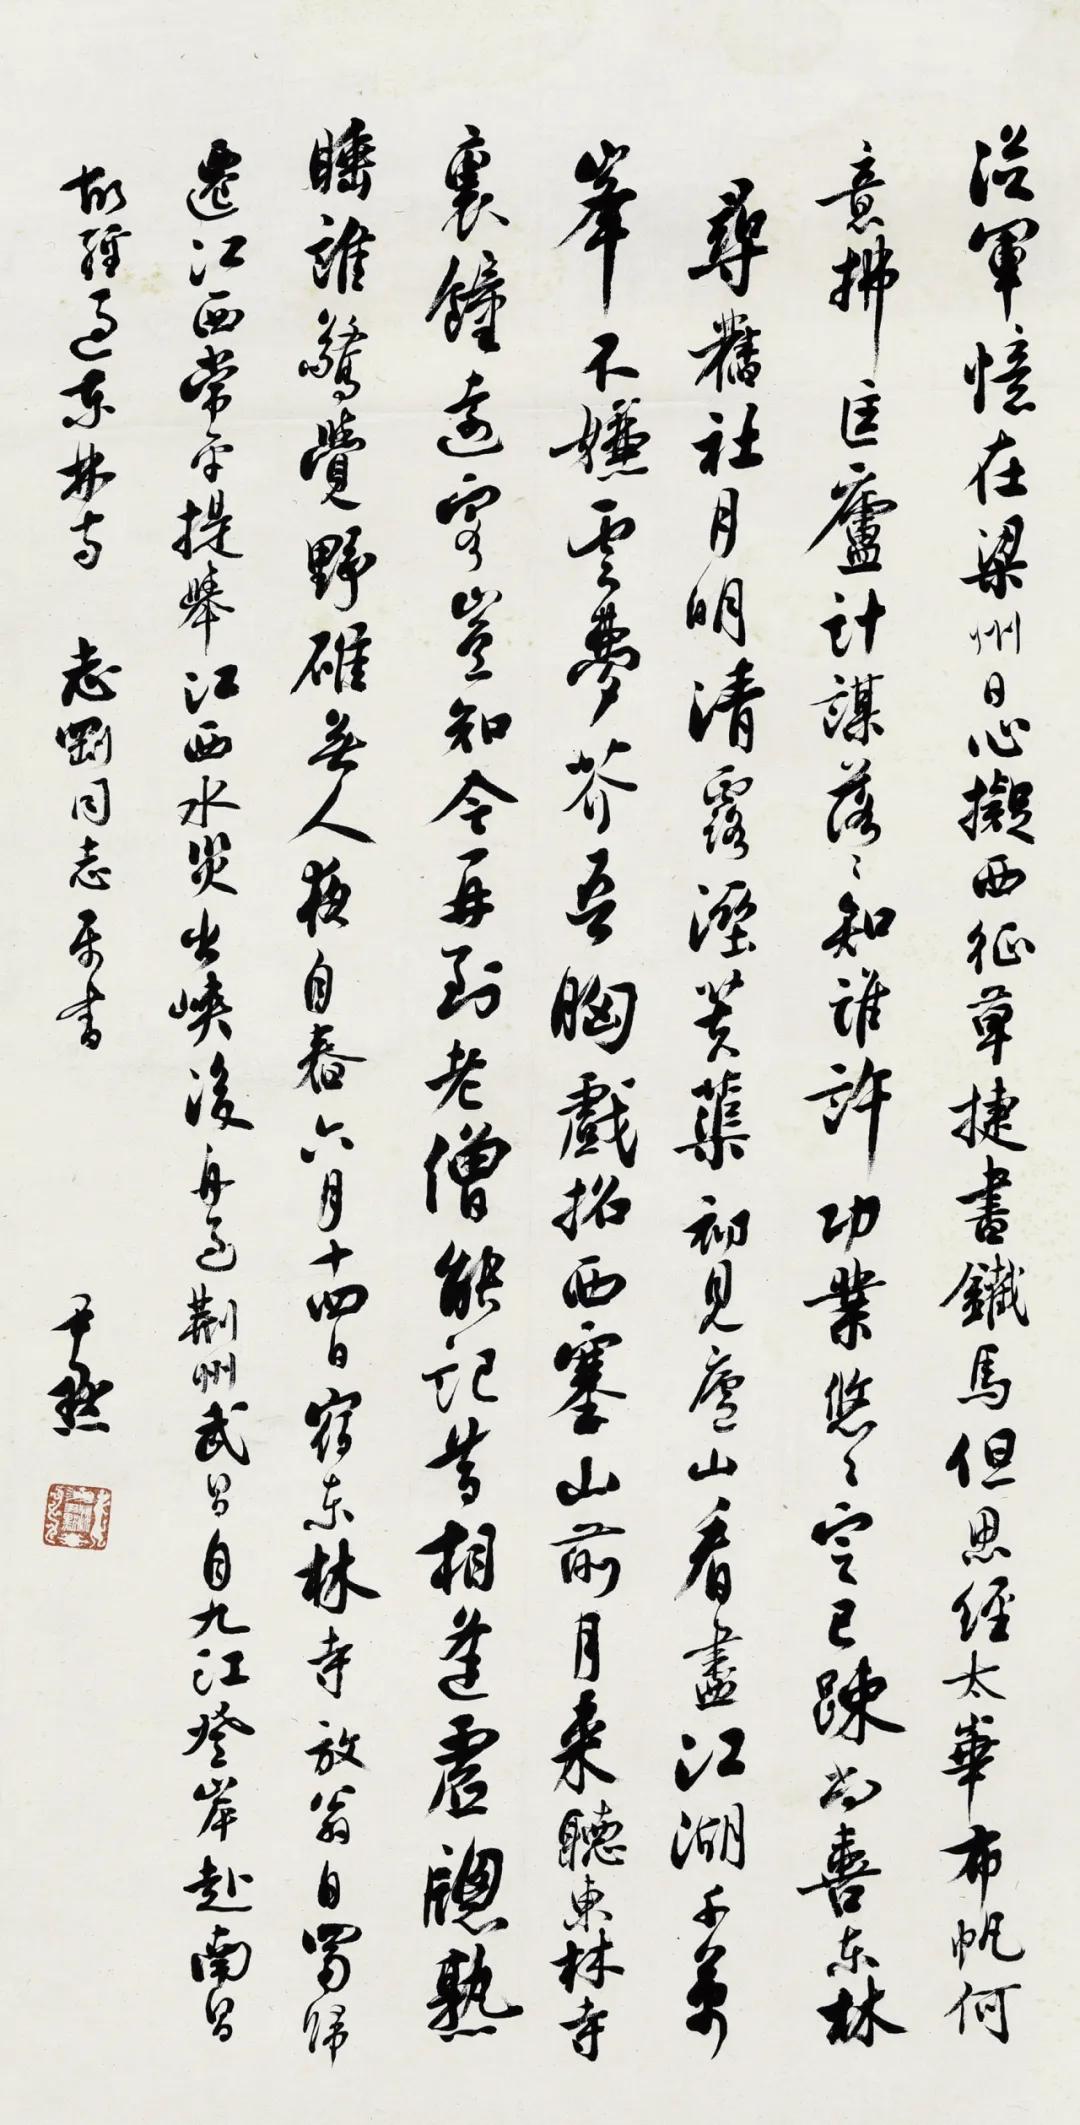 從軍憶在梁州日心擬西征草捷書鐵馬但思經太華布帆何
意拂匡廬計謀落〻知誰許功業悠〻定已踈尚喜東林
尋舊社月明清露溼芙蕖初見廬山看盡江湖千萬
峯不嫌雲夢芥吾胸戲招西塞山前月來聽東林寺
裏鐘遠客豈知今再到老僧能記昔相逢虛牕熟
睡誰驚覺野碓無人夜自舂六月十四日宿東林寺放翁自蜀歸
遷江西常平提舉江西水災出峽後舟過荊州武昌自九江登岸赴南昌
故經過東林寺 志剛同志屬書 尹默